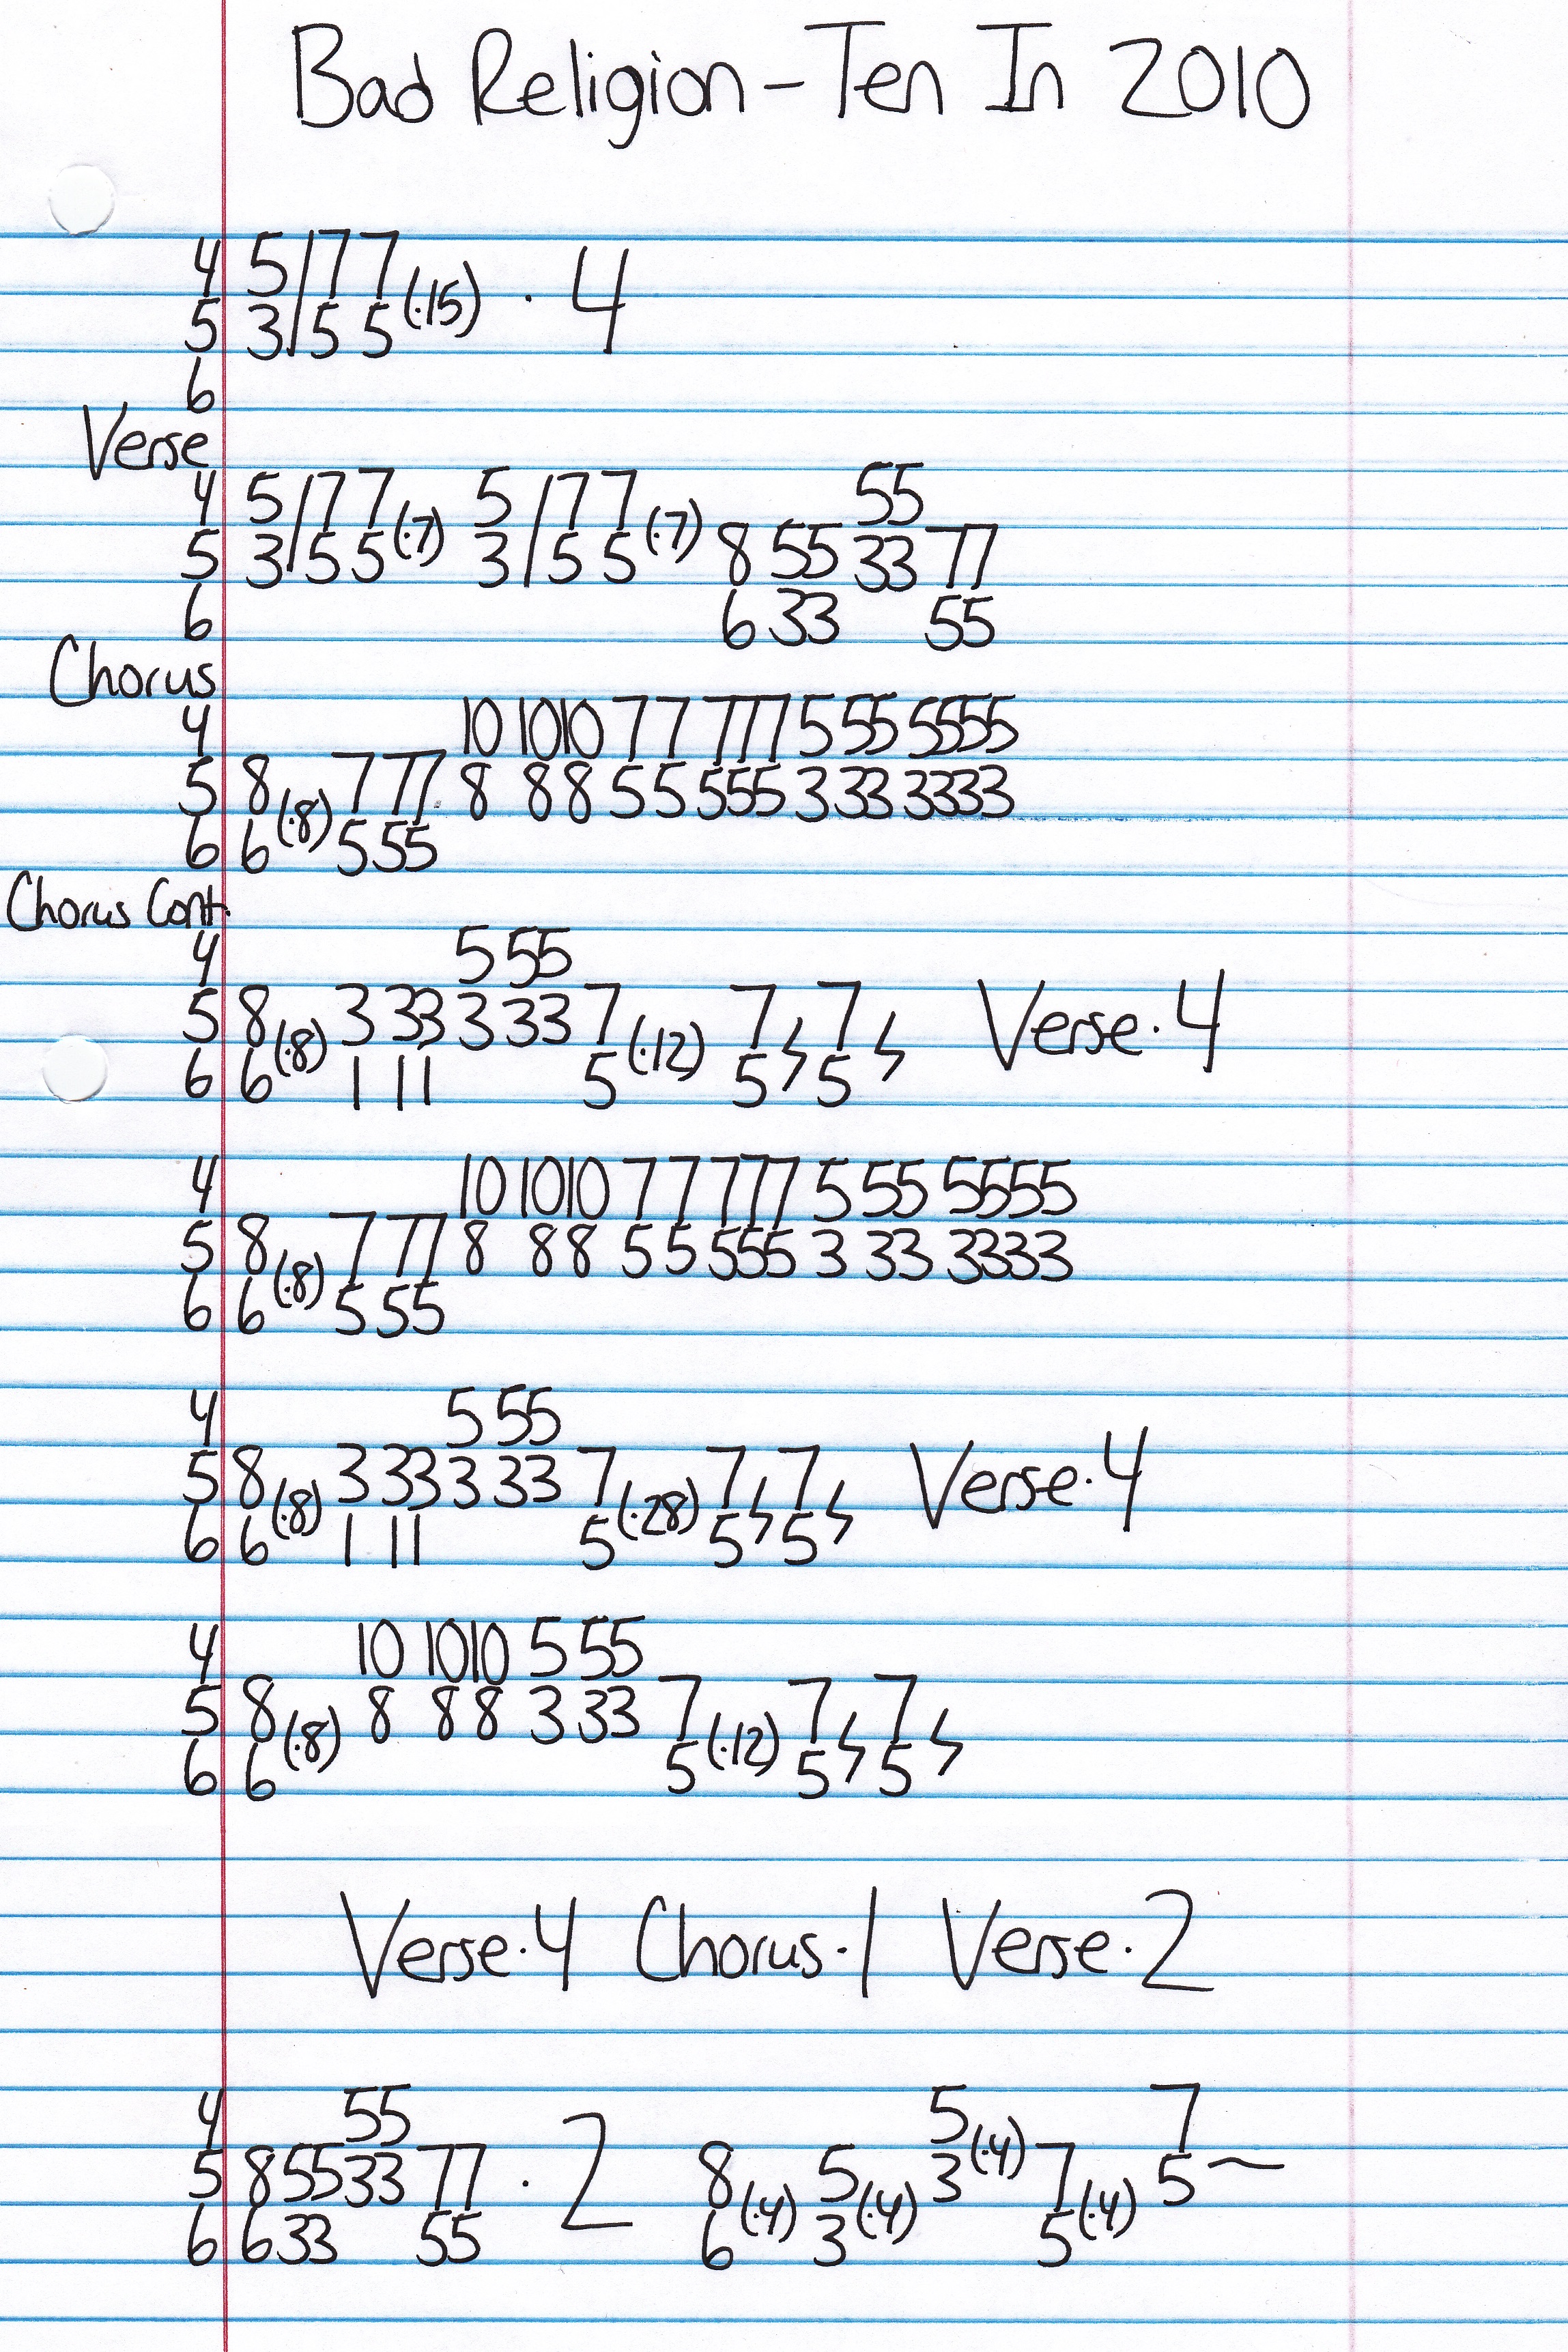 Bad Religion - Ten In 2010
4 5/77
5 3/55 (·15) · 4
6
Verse
4 5/77 5/77 55
5 3/55(·7) 3/55(·7) 8 55 33 77
6 6 33 55
Chorus
4 10 1010 77 777 5 55 5555
5 8 (·8) 7 77 8 88 55 555 3 33 3333
6 6 5 55
Chorus Cont.
4 5 55
5 8 (·8) 3 33 3 33 7 (·12) 7 ϟ 7 ϟ Verse · 4
6 6 1 11 5 5 5
4 10 1010 77 777 5 55 5555
5 8 (·8) 7 77 8 88 55 555 3 33 3333
6 6 5 55
4 5 55
5 8 (·8) 3 33 3 33 7 (·28) 7 ϟ 7 ϟ Verse · 4
6 6 1 11 5 5 5
4 10 1010 5 55
5 8 (·8) 8 88 3 33 7 (·12) 7 ϟ 7 ϟ
6 6 5 5 5
Verse · 4 Chorus · 1 Verse · 2
4 55 5 7
5 8 55 33 77 · 2 8 (·4) 5 (·4) 3 (·4) 7 (·4) 5 ~
6 6 33 55 6 3 5